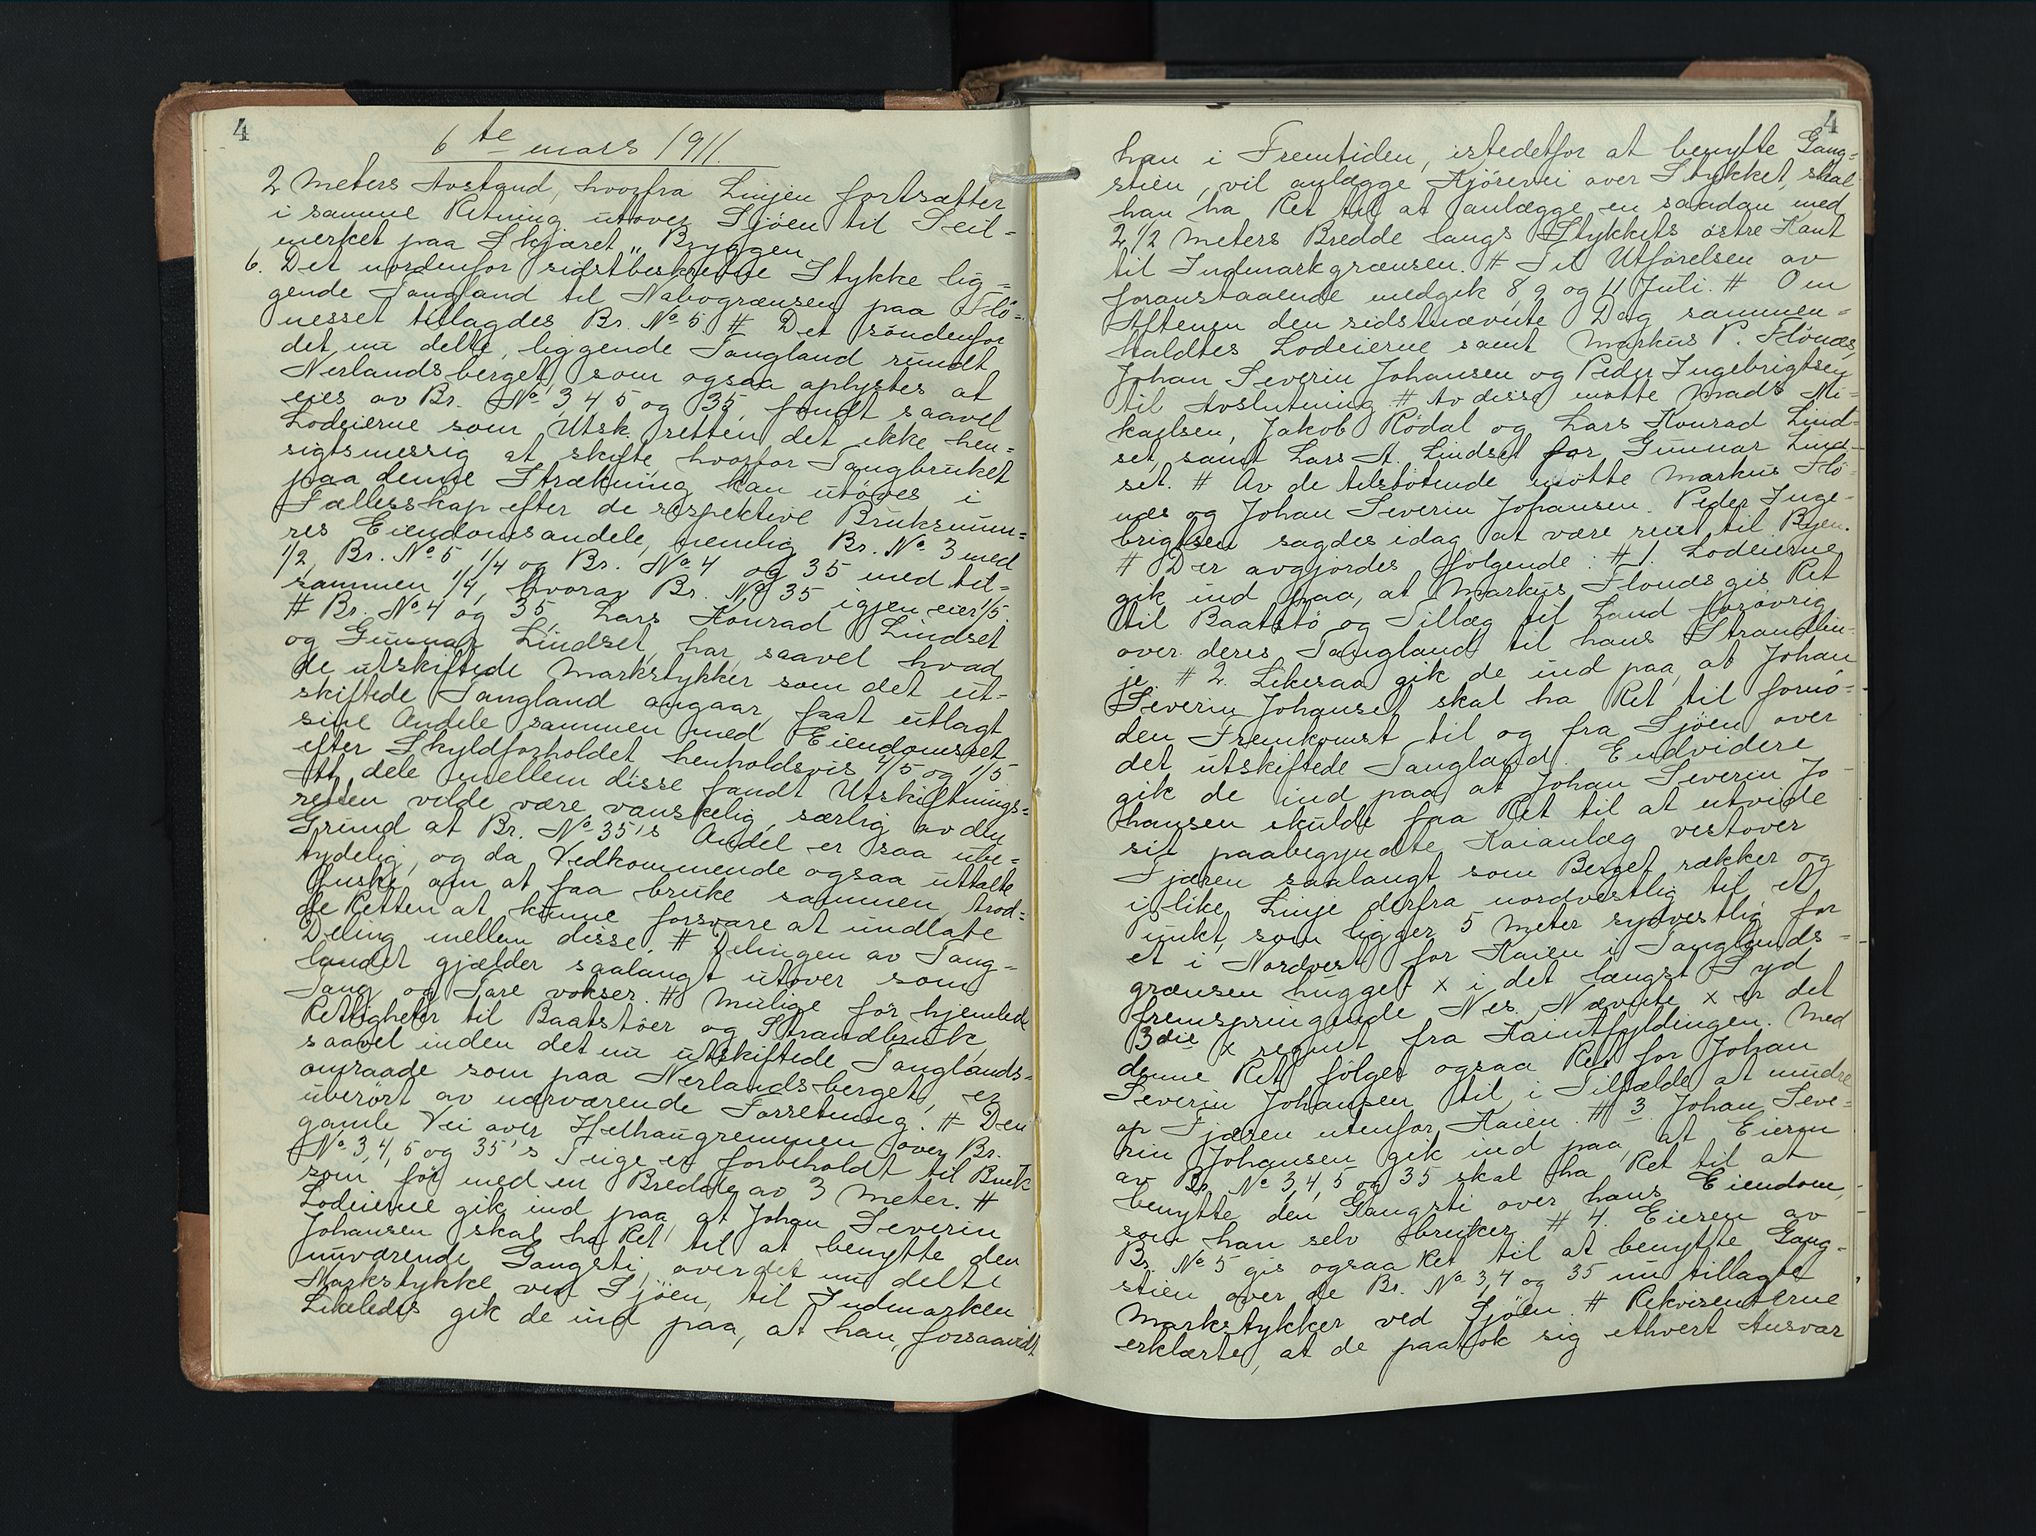 4
6te mars 1911.
2 Meters Avstand, hvorfra Linjen fortsætter
i samme Retning utover Sjöen til Seil-
merket paa Skjæret „Bryggen
6. Det nordenfor sidstbeskrevne Stykke lig-
gende Tangland til Nabogrænsen paa Flö-
nesset tillagdes Br. No 5 # Det söndenfor
det nu delte, liggende Tangland rundt
Nerlandsberget, som ogsaa oplystes at
eies av Br. No 3, 4, 5 og 35, fandt saavel
Lodeierne som Utsk. retten det ikke hen-
sigtsmessig at skifte, hvorfor Tangbruket
paa denne Strækning kan utöves i
Fællesskap efter de respektive Bruksnum-
res Eiendomsandele, nemlig Br. No. 3 med
1/2, Br. No 5 1/4 og Br. No 4 og 35 med til-
sammen 1/4, hvorav Br. No 35 igjen eier 1/5.
# Br. No 4 og 35, Lars Konrad Lindset
og Gunnar Lindset, har saavel hvad
de utskiftede Markstykker som det ut-
skiftede Tangland angaar, faat utlagt
sine Andele sammen med Eiendomsret
efter Skyldforholdet henholdsvis 4/5 og 1/5
At dele mellem disse fandt Utskiftnings-
retten vilde være vanskelig, særlig av den
Grund at Br. No 35's Andel er saa ube-
tydelig, og da Vedkommende ogsaa uttalte
Önske om at faa bruke sammen, trod-
de Retten at kunne forsvare at undlate
Deling mellem disse. # Delingen av Tang-
landet gjælder saalangt utover som
Tang og Tare vokser. # Mulige för hjemlede
Rettigheter til Baatstöer og Strandbruk,
saavel inden det nu utskiftede Tanglands-
omraade som paa Nerlandsberget, er
uberört av nærværende Forretning. # Den
gamle Vei over Helhaugremmen over Br.
No 3, 4, 5 og 35's Teige er forbeholdt til Bruk
som för med en Bredde av 3 Meter. #
Lodeierne gik ind paa, at Johan Severin
Johansen skal ha Ret til at benytte den
nuværende Gangsti, over det nu delte
Markstykke ved Sjöen, til Indmarken
Likeledes gik de ind paa, at han, forsaavidt
4
han i Fremtiden, istedetfor at benytte Gang-
stien, vil anlægge Kjörevei over Stykket, skal
han ha Ret til at anlægge en saadan med
2 1/2 Meters Bredde langs Stykkets östre Kant
til Indmarkgrænsen. # Til Utförelsen av
foranstaaende medgik 8, 9 og 11 Juli. # Om
Aftenen den sidstnævnte Dag sammen-
kaldtes Lodeierne samt Markus P. Flönæs,
Johan Severin Johansen og Peder Ingebrigtsen
til Avslutning # Av disse mötte Mads Mi-
kaelsen, Jakob Rödal og Lars Konrad Lind-
set, samt Lars A. Lindset for Gunnar Lind-
set. # Av de tilstötende mötte Markus Flö-
næs og Johan Severin Johansen. Peder Inge-
brigtsen sagdes idag at være reist til Byen.
# Der avgjordes fölgende: # 1. Lodeierne
gik ind paa, at Markus Flönæs gis Ret
til Baatstö og Tillæg til Land forövrig
over deres Tangland til hans Strandlin-
je. # 2. Likesaa gik de ind paa, at Johan
Severin Johansen skal ha Ret til fornö-
den Fremkomst til og fra Sjöen over
det utskiftede Tangland. Endvidere
gik de ind paa at Johan Severin Jo-
hansen skulde faa Ret til at utvide
sit paabegyndte Kaianlæg vestover
Fjæren saalangt som Berget rækker og
i like Linje derfra nordvestlig til et
unkt, som ligger 5 Meter sydvestlig for
et i Nordvest for Kaien i Tanglands-
grænsen hugget x i det længst Syd
fremspringende Nes. Nævnte x er det
3die x regnet fra Kaintfyldingen. Med
denne Ret fölger ogsaa Ret for Johan
Severin Johansen til, i Tilfælde at mudre
op Fjæren utenfor Kaien. # 3. Johan Seve-
rin Johansen gik ind paa, at Eieren
av Br. No 3, 4, 5 og 35 skal ha Ret til at
benytte den Gangsti over hans Eiendom,
som han selv bruker # 4. Eieren av
Br. No 5 gis ogsaa Ret til at benytte Gang-
stien over de Br. No 3, 4 og 35 nu tillagte
Markstykker ved Sjöen. # Rekvirenterne
erklærte, at de paatok sig ethvert Ansvar